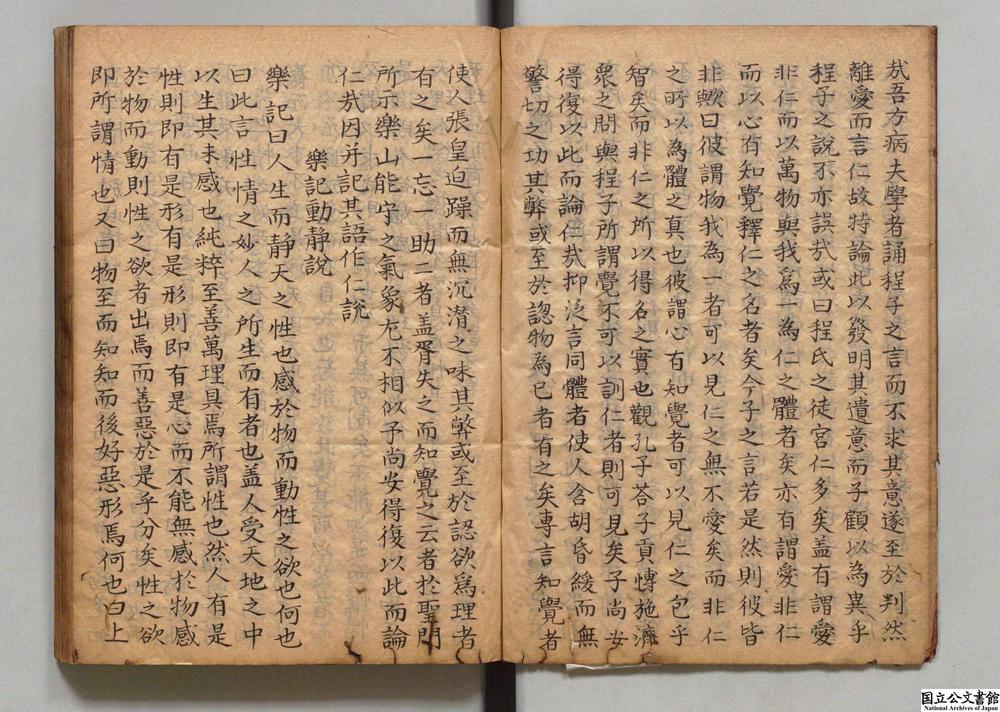 哉吾方病夫學者誦程子之言而不求其意遂至於判然
離愛而言仁故特論此以發明其遺意而子顧以為異乎
程子之說不亦誤哉或曰程氏之徒宮仁多矣盖有謂愛
非仁而以萬物與我爲一為仁之體者矣亦有謂愛非仁
而以心有知覺釋仁之名者矣今子之言若是然則彼皆
非歟曰彼謂物我為一者可以見仁之無不愛矣而非仁
之所以為體之真也彼謂心有知覺者可以見仁之包乎
智矣而非仁之所以得名之實也觀孔子荅子貢慱施濟
衆之問與程子所謂覺不可以訓仁者則可見矣子尚安
得復以此而論仁哉抑泛言同體者使人含胡昏緩而無
警切之功其弊或至於認物為已者有之矣專言知覺者
使人張皇迫躁而無沉潜之味其弊或至於認欲爲理者
有之矣一忘一助二者盖胥失之而知覺之云者於聖門
所示樂山能守之氣象尤不相似子尚安得復以此而論
仁哉因并記其語作仁說
樂記動靜說
樂記曰人生而靜天之性也感於物而動性之欲也何也
曰此言性情之妙人之所生而有者也盖人受天地之中
以生其未感也純粹至善萬理具焉所謂性也然人有是
性則即有是形有是形則即有是心而不能無感於物感
於物而動則性之欲者出焉而善惡於是乎分矣性之欲
即所謂情也又曰物至而知知而後好惡形焉何也曰上
国立公文書館
National Archives of Japan